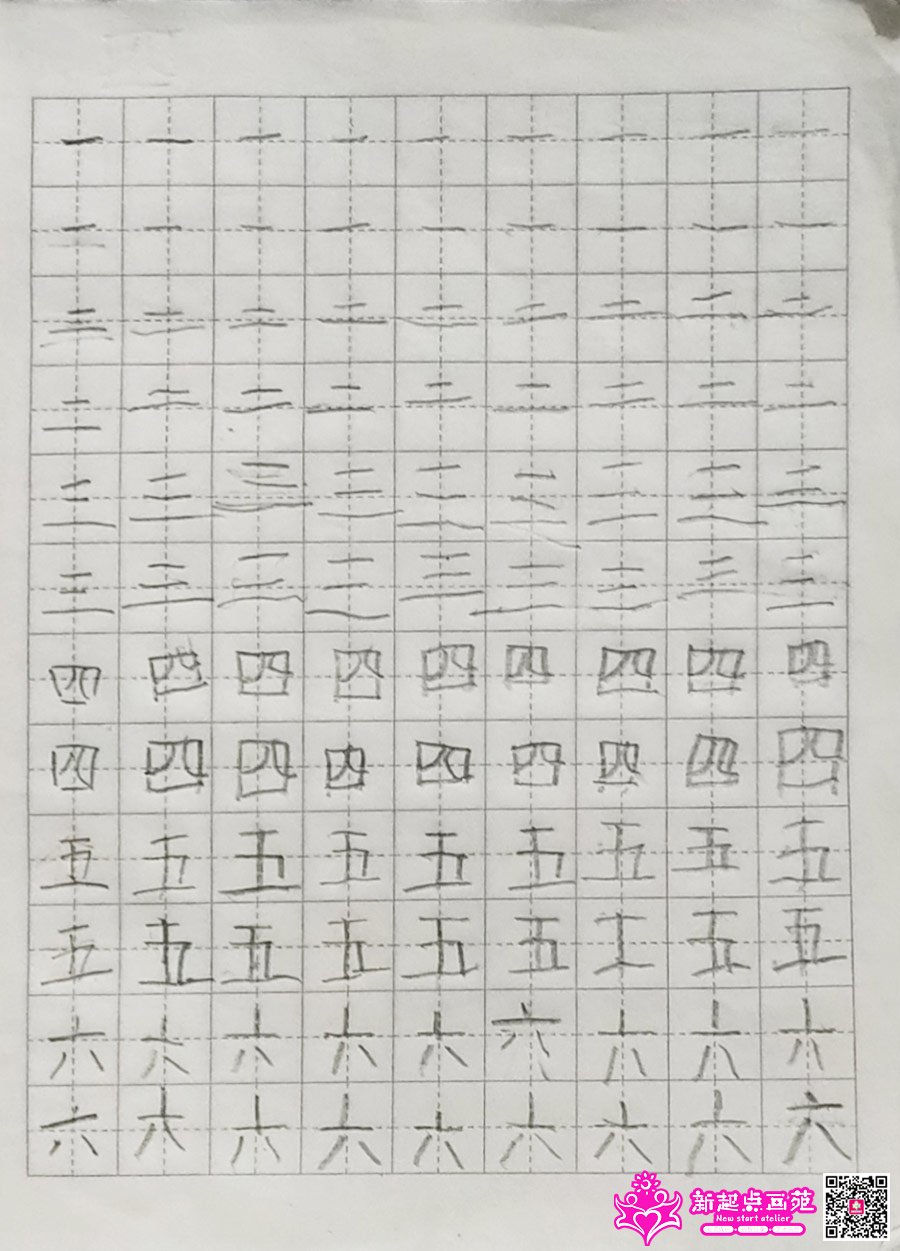 一一一一一一一一一
一一一一一一一一一
二二二二二二二二二
二二二二二二二二二
三三三三三三三三三
三三三三三三三三三
四四四四四四四四四
四四四四四四四四四
五五五五五五五五五
五五五五五五工五五
六六六六六六六六六
六六六六六六六六六
新起点画苑
New start atelier